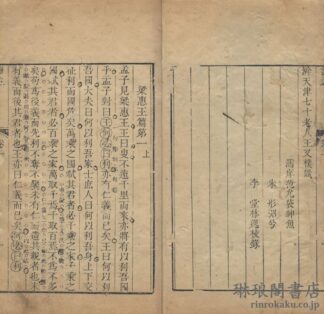 解天津七十老人王又樸識
李 堂林選校錄
梁惠王篇第一上
孟子見梁惠王王曰叟不遠千里而來亦將有以利吾國
乎孟子對曰王何必曰利亦有仁義而已矣王曰何以利
吾國大夫曰何以利吾家士庶人曰何以利吾身上下交
征利而國危矣萬乘之國弒其君者必千乘之家千乘之
國弒其君者必百乘之家萬取千焉千取百焉不為不多
矣苟為後義而先利不奪不饜未有仁而遺其親者也未
有義而後其君者也王亦曰仁義而已矣何必曰利
琳琅閣書店
rinrokaku.co.jp